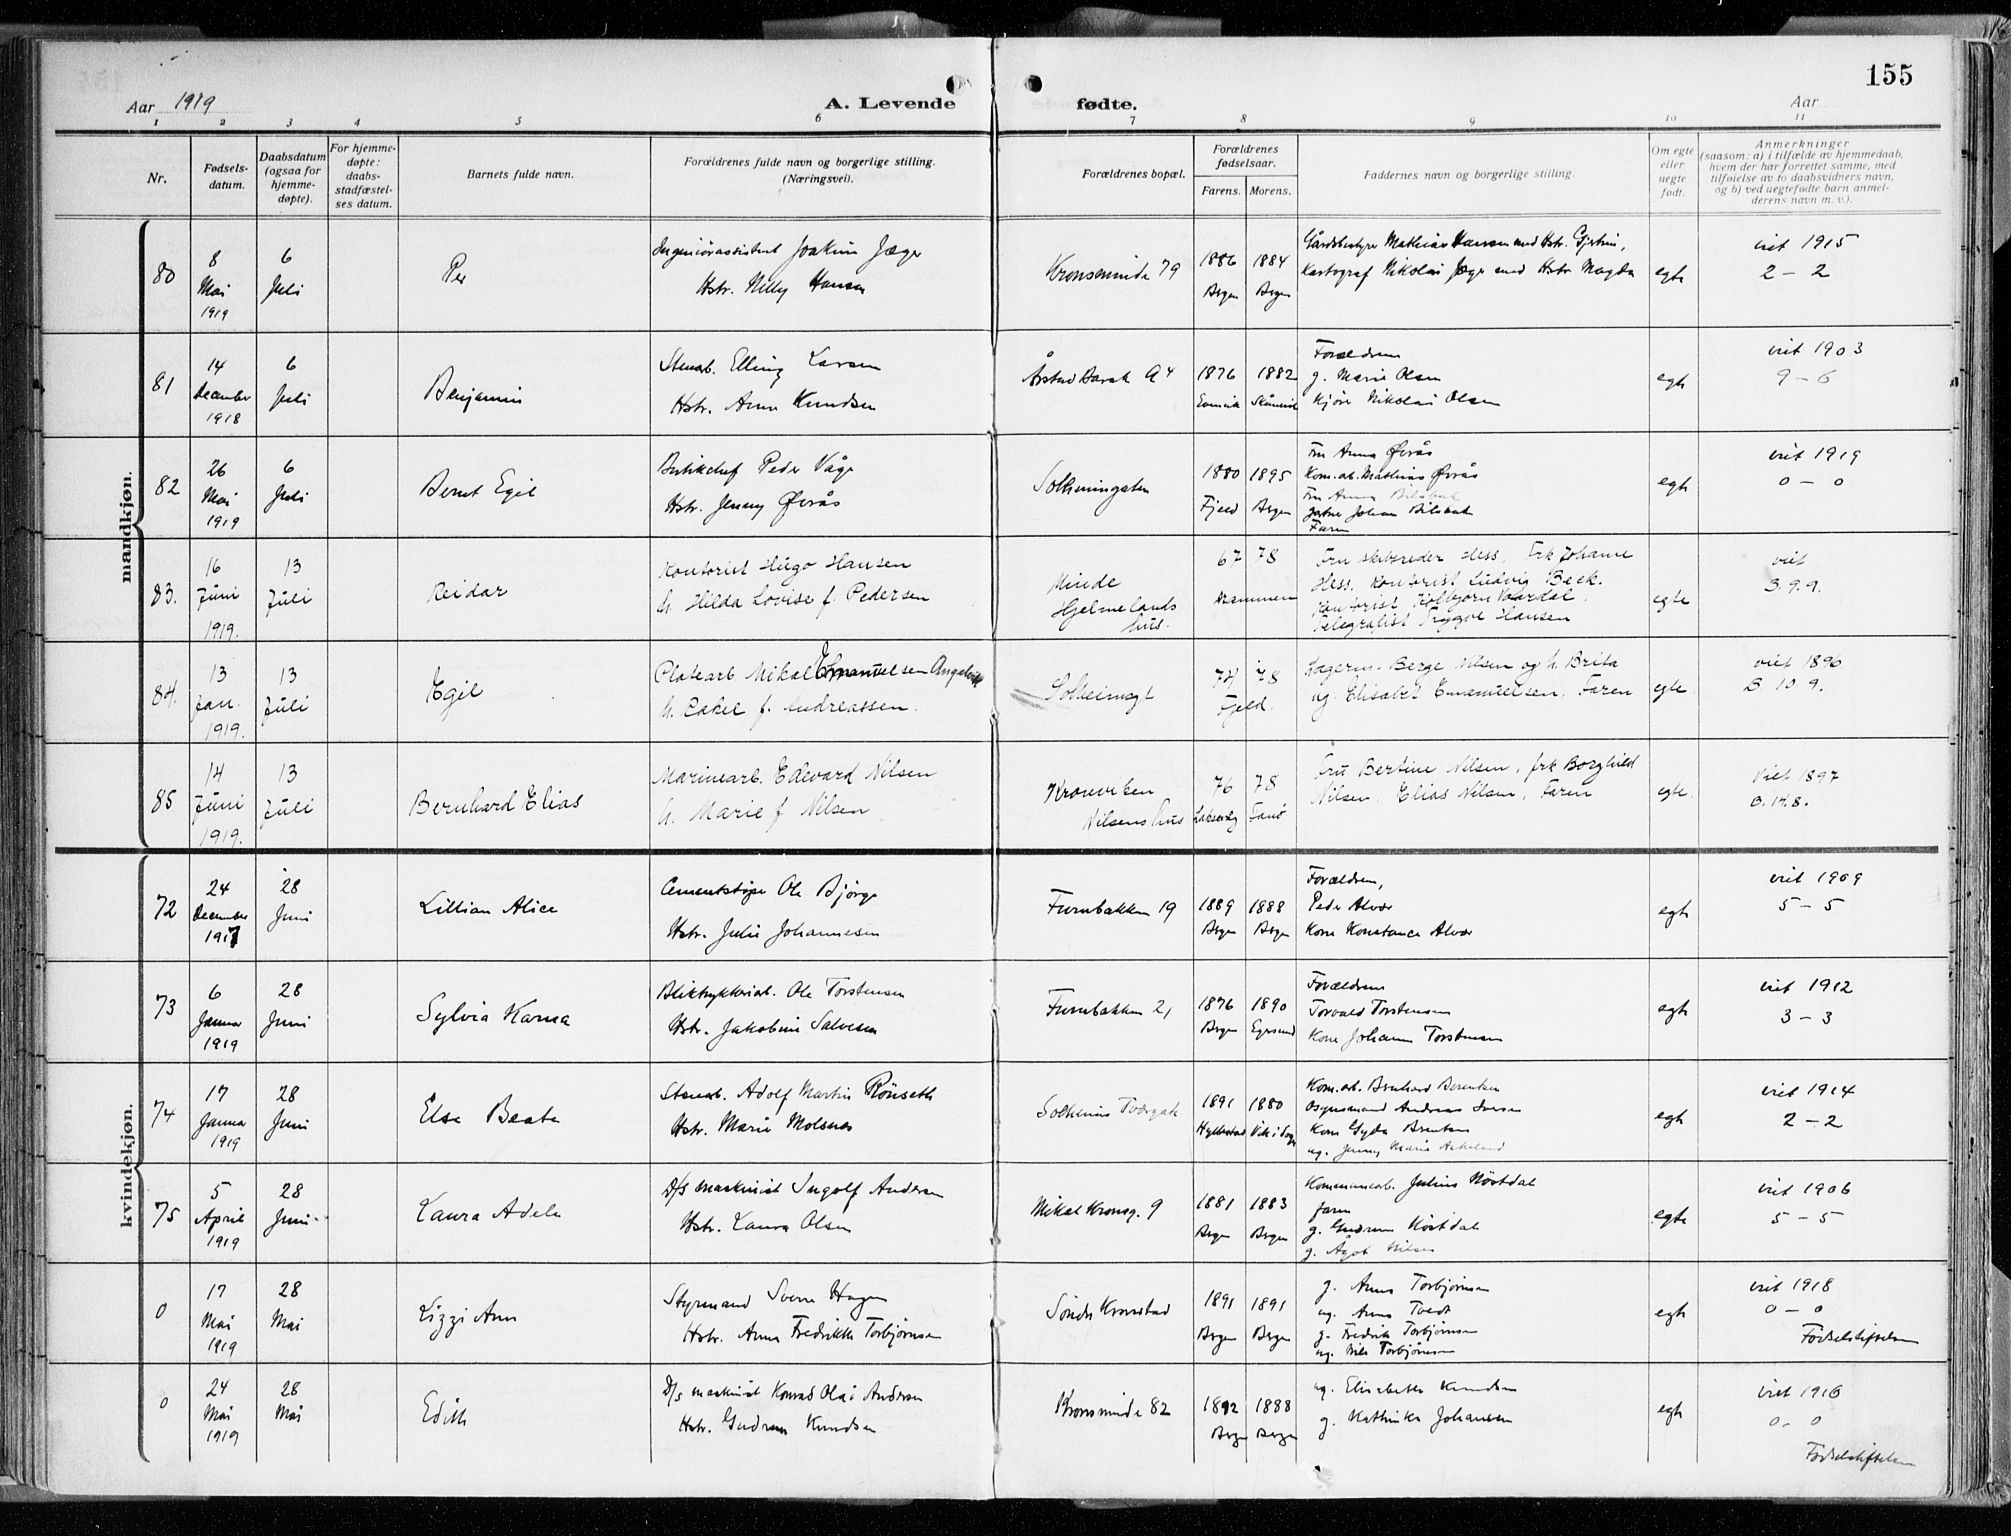 155
Aar 1919
A. Levende fødte.
Aar
1 2 3 4 5 6 7 8 9 10 11
Nr.
Fødsels-
datum.
Daabsdatum
(ogsaa for
hjemme-
døpte).
For hjemme-
døpte:
daabs-
stadfæstel-
ses datum.
Barnets fulde navn.
Forældrenes fulde navn og borgerlige stilling.
(Næringsvei).
Forældrenes bopæl.
Forældrenes
fødselsaar.
Farens. Morens.
Faddernes navn og borgerlige stilling.
Om egte
eller
uegte
født.
Anmerkninger
(saasom: a) i tilfælde av hjemmedaab,
hvem der har forrettet samme, med
tilføielse av to daabsvidners navn,
og b) ved uegtefødte barn anmel-
derens navn m. v.).
mandkjøn.
80
8
Mai
1919
6
Juli
Per
Ingeniørassistent Joakim Jæger
Hstr. Nilly Hansen
Kronsminde 79
1886 1884
Bergen Bergen
Gårdsbestyrer Mathias Hansen med Hstr. Gjertine,
Kartograf Nikolai Jæger med Hstr Magda
egte
viet 1915
2 – 2
81
14
December
1918
6
Juli
Benjamin
Stenarb. Elling Larsen
Hstr. Anna Knudsen
Årstad Barak A4
1876 1882
Forældrene
g. Marie Olsen
Kjøre Nikolai Olsen
egte
viet 1903
9 – 6
82
26
Mai
1919
6
Juli
Bernt Egil
Butikchef Peder Våge
Hstr. Jenny Øvrås
Solheimsgaten
1880 1895
Fjeld Bergen
Fru Anna Øvrås
Kom.arb. Mathias Øvrås
Fru Anna Bilsbak
Johan Bilsbak
Faren
egte
viet 1919
0 – 0
83.
16
Juni
1919.
13
Juli
Reidar
Kontorist Hugo Hansen
h. Hilda Lovise f. Pedersen
Minde
Hjelmelands
hus.
67 78
Drammen
Fru skibsreder Hess, Frk Johanne
Hess, Kontorist Ludvig Beck.
Kontorist Kolbjørn Vaardal,
Telegrafist Trygve Hansen
egte
viet
3. 9. 9.
84.
13
Jan.
1919.
13
Juli
Egil
Platearb Mikal Emanuelsen Angeltvedt
h. Rakel f. Andreassen.
Solheimsgt
74 78
Fjeld.
Lagerm. Berge Nilsen og h. Brita
ug. Elisabet Emanuelsen. Faren
egte.
viet 1896
B. 10 9.
85
14
Juni
1919.
13
Juli
Bernhard Elias
Marinearb. Edevard Nilsen
h. Marie f. Nilsen
Kronviken
Nilsens hus
76 78
Laksevåg Fanø
Fru Bertine Nilsen, frk Borghild
Nilsen, Elias Nilsen, Faren
egte.
Viet 1897
B. 14. 8.
kvindekjøn.
72
24
December
1917
28
Juni
Lillian Alice
Cementstøper Ole Bjørge
Hstr. Julie Johannesen
Furubakken 19
1889 1888
Bergen Bergen
Forældrene,
Peder Alvær
Kone Konstance Alvær
egte
viet 1909
5 – 5
73
6
Januar
1919
28
Juni
Sylvia Karna
Bliktrykkeriarb. Ole Torstensen
Hstr. Jakobine Salvesen
Furubakken 21
1876 1890
Bergen Egersund
Forældrene
Torvald Torstensen
Kone Johanne Torstensen
egte
viet 1912
3 – 3
74
17
Januar
1919
28
Juni
Else Beate
Stenarb. Adolf Martin Rönseth
Hstr. Marie Molsnes
Solheims Tværgate
1891 1880
Hyllestad Vik i Sogn
Kom.arb. Bernhard Berentsen
Andreas Iversen
Kone Gyda Berentsen
ug. Jenny Marie Askeland
egte
viet 1914
2 – 2
75
5
April
1919
28
Juni
Laura Adele
D/s maskinist Ingolf Andersen
Hstr. Laura Olsen
Mikal Kronsg. 9
1881 1883
Bergen Bergen
Kommunearb. Julius Nöstdal
faren
g. Gudrun Nöstdal
g. Ågot Nilsen
egte
viet 1906
5 – 5
0
17
Mai
1919
28
Mai
Lizzi Ann
Styrmand Sverre Hagen
Hstr. Anna Fredrikke Torbjørnsen
Söndre Kronstad
1891 1891
Bergen Bergen
g. Anna Torbjørnsen
ug. Anna Tvedt
g. Fredrik Torbjørnsen
ug. Nils Torbjørnsen
egte
viet 1918
0 – 0
Fødselsstiftelsen
0
24
Mai
1919
28
Mai
Edith
D/s maskinist Konrad Olai Andersen
Hstr. Gudrun Knudsen
Kronsminde 82
1892 1888
Bergen Bergen
ug. Elisabeth Knudsen
g. Kathinka Johansen
egte
viet 1916
0 – 0
Fødselsstiftelsen